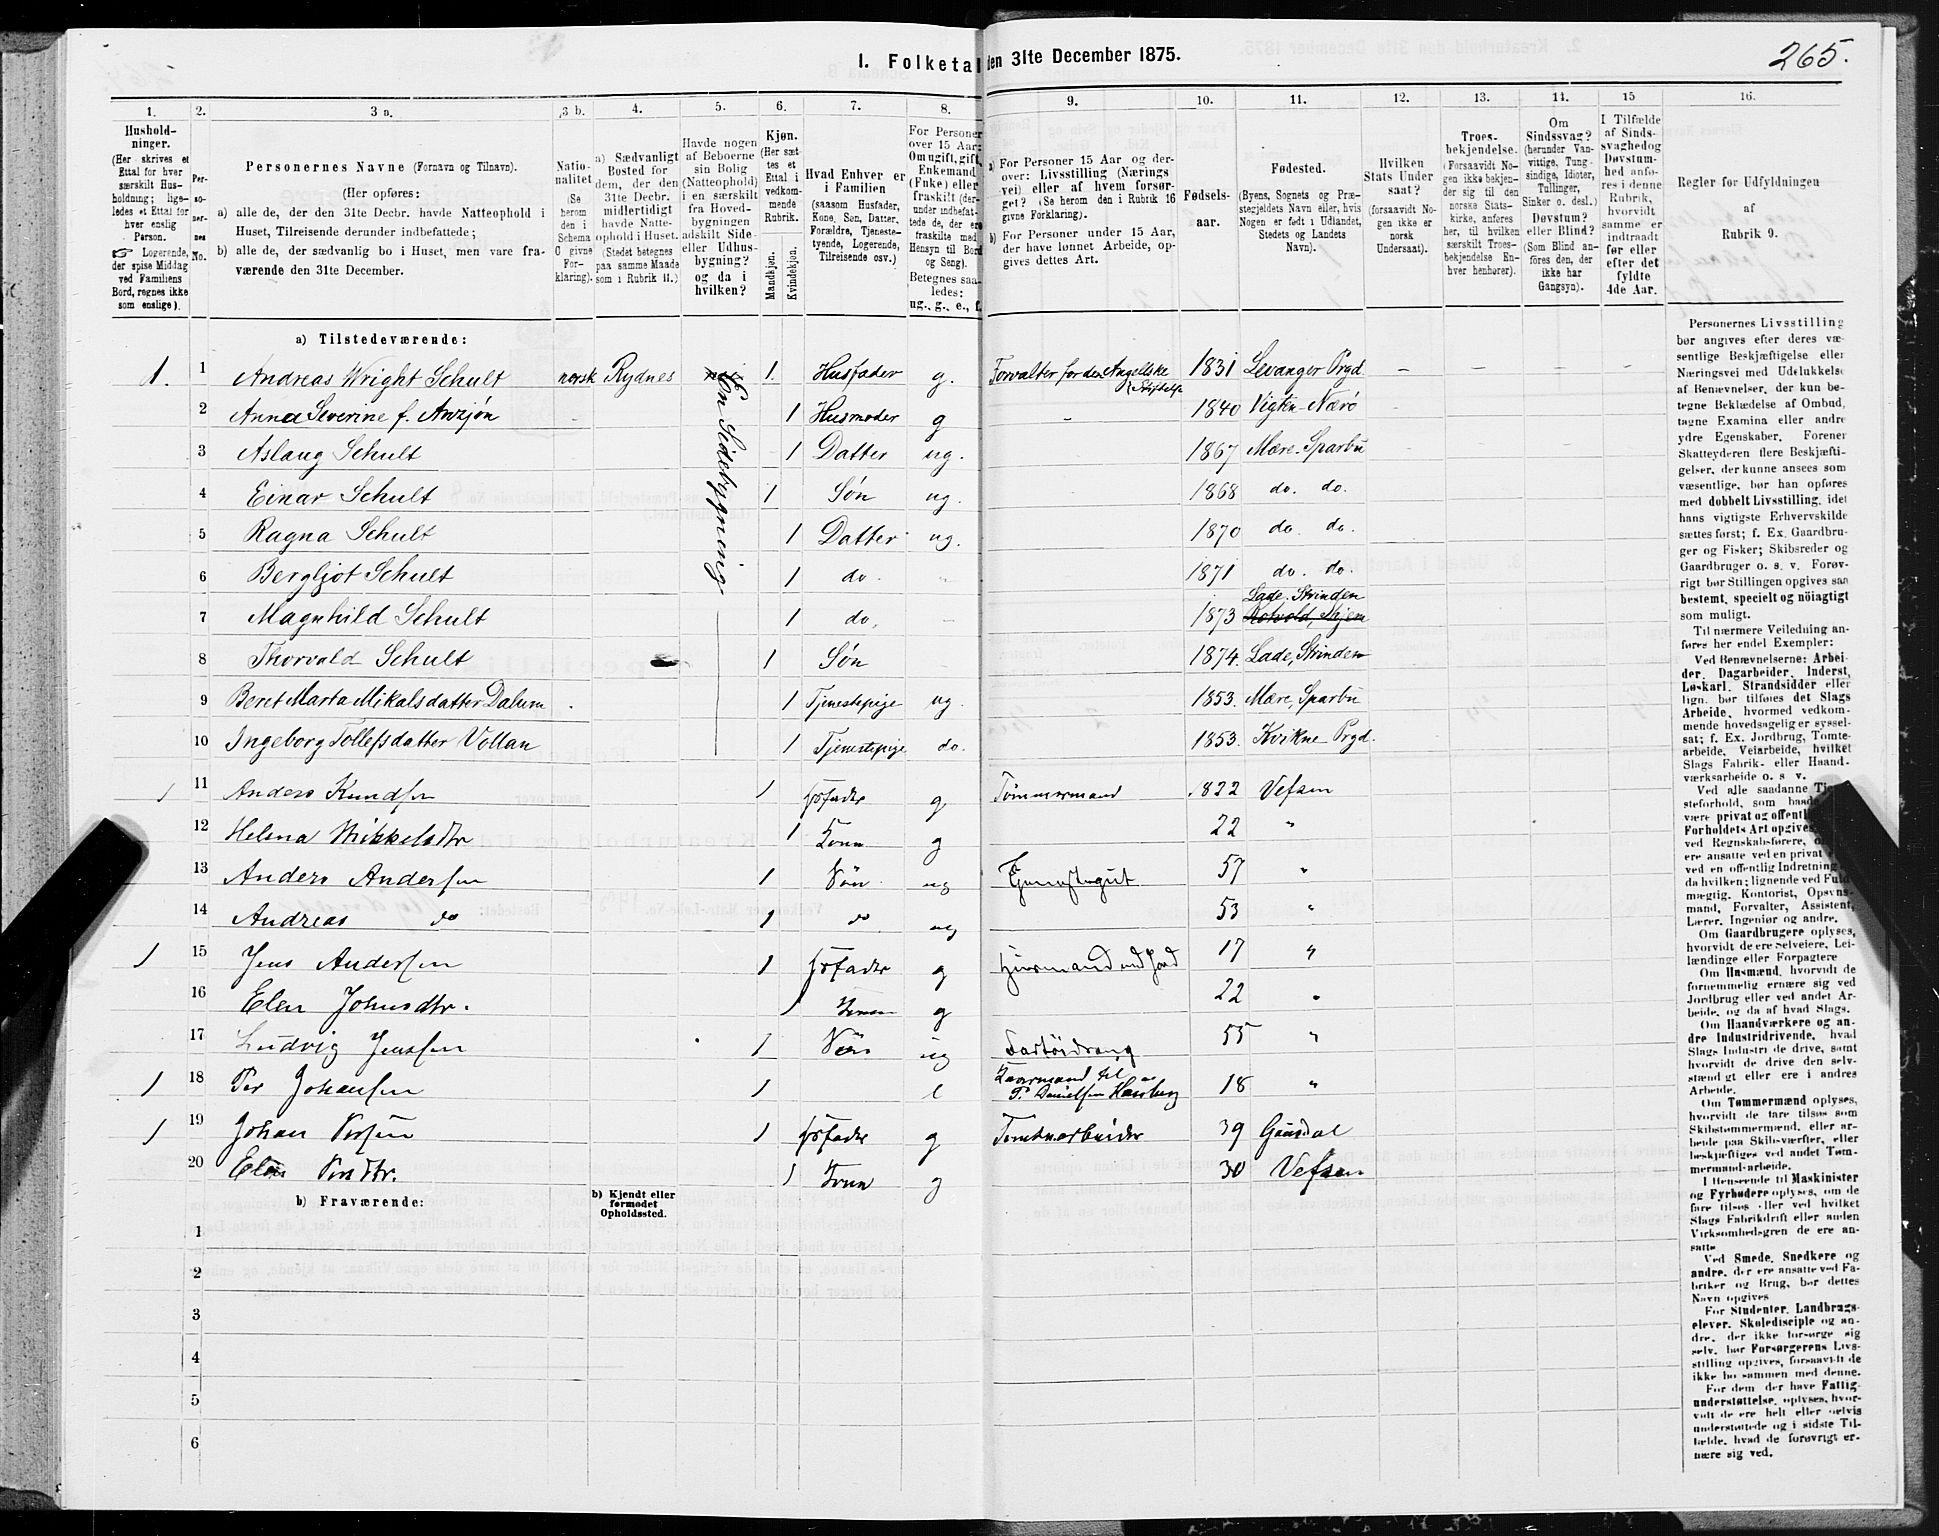 1. Folketal den 31te December 1875.
265.
1.
2.
3 a.
3 b.
4.
5.
6.
7.
8.
9.
10.
11.
12.
13.
14.
15
16.
Hushold-
ninger.
(Her skrives et
Ettal for hver
særskilt Hus-
holdning; lige-
ledes et Ettal for
hver enslig
Person.
☞ Logerende,
der spise Middag
ved Familiens
Bord, regnes ikke
som enslige).
Per-
so-
ner-
nes
No.
Personernes Navne (Fornavn og Tilnavn).
(Her opføres:
a) alle de, der den 31te Decbr. havde Natteophold i
Huset, Tilreisende derunder indbefattede;
b) alle de, der sædvanlig bo i Huset, men vare fra-
værende den 31te December.
Natio-
nalitet
(Se
herom
den i
Schema
C givne
For-
klaring).
a) Sædvanligt
Bosted for
dem, der den
31te Decbr.
midlertidigt
havde Natte-
ophold i Huset.
(Stedet betegnes
paa samme Maade
som i Rubrik 11.)
Havde nogen
af Beboerne
sin Bolig
(Natteophold)
i en særskilt
fra Hoved-
bygningen
adskilt Side-
eller Udhus-
bygning?
og da i
hvilken?
Kjøn.
(Her sæt-
tes et
Ettal i
vedkom-
mende
Rubrik.
Mandkjøn.
Kvindekjøn.
Hvad Enhver er
i Familien
(saasom Husfader,
Kone, Søn, Datter,
Forældre, Tjeneste-
tyende, Logerende,
Tilreisende osv.)
For Personer
over 15 Aar:
Om ugift, gift,
Enkemand
(Enke) eller
fraskilt (der-
under indbefat-
tede de, der ere
fraskilte med
Hensyn til Bord
og Seng).
Betegnes saa-
ledes:
ug., g., e., f.
a) For Personer 15 Aar og der-
over: Livsstilling (Nærings-
vei) eller af hvem forsør-
get? (Se herom den i Rubrik 16
givne Forklaring).
b) For Personer under 15 Aar,
der have lønnet Arbeide, op-
gives dettes Art.
Fødsels-
aar.
Fødested.
(Byens, Sognets og Præ-
stegjeldets Navn eller, hvis
Nogen er født i Udlandet,
Stedets og Landets
Navn).
Hvilken
Stats Under
saat?
(forsaavidt No-
gen ikke er
norsk
Undersaat).
Troes-
bekjendelse.
(Forsaavidt No-
gen ikke bekjen-
der sig til den
norske Stats-
kirke, anføres
her, til hvilken
særskilt Troes-
bekjendelse En-
hver henhører).
Om
Sindssvag?
(herunder Van-
vittige, Tung-
sindige, Idioter,
Tullinger,
Sinker o. desl.)
Døvstum?
eller Blind?
(Som Blind an-
føres den, der
ikke har
Gangsyn).
I Tilfælde
af Sinds-
svaghed og
Døvstum-
hed anfø-
res i denne
Rubrik,
hvorvidt
samme er
indtraadt
før eller
efter det
fyldte
4de Aar.
Regler for Udfyldningen
af
Rubrik 9.
a) Tilstedeværende:
1. 1 Andreas Wright Schult norsk Rydnes En Sidebygning 1. Husfader g. Forvalter for den Angelske Stiftelse 1831 Levanger Prgd – – – –
2 Anna Severine f. Arvjøn 1 Husmoder g – 1840 Vigten Nærö
3 Aslaug Schult 1 Datter ug. 1867 Mære. Sparbu
4 Einar Schult 1 Søn ug. 1868 do. do.
5 Ragna Schult 1 Datter ug. 1870 do do.
6 Bergljot Schult 1 do. " 1871 do. do.
7 Magnhild Schult 1 do, – 1873 Lade. Strinden
8 Thorvald Schult 1 Søn – 1874. Lade, Strinden
9 Beret Marta Mikalsdatter Dalum 1 Tjenestepige ug. 1853. Mære, Sparbu
10 Ingeborg Tollefsdatter Vollan 1 Tjenestepige do. 1853. Kvikne Prgd.
1 11 Anders Knudsen 1 Hsfader g Tømmermand 1822 Vefsen
12 Helena Mikkelsdtr 1 Kone g 22 "
13 Anders Andersen 1 Søn ug Tjenestegut 57 "
14 Andreas do 1 do ug 53 "
1 15 Jens Andersen 1 Hsfader g Huusmand med Jord 17 "
16 Elen Johnsdtr. 1 Konen g 22 "
17 Ludvig Jenssen 1 Søn ug 55 "
1 18 Per Johansen 1 e til P. Danielsen 18 "
1 19 Johan Persen 1 Hsfader g Tomtearbeider 39 Gausdal
20 Elen Persdtr. 1 Kone g 30 Vefsen
b) Fraværende:
b) Kjendt eller
formodet
Opholdssted.
1
2
3
4
5
6
Personernes Livsstilling
bør angives efter deres væ-
sentlige Beskjæftigelse eller
Næringsvei med Udelukkelse
af Benævnelser, der kun be-
tegne Beklædelse af Ombud,
tagne Examina eller andre
ydre Egenskaber. Forener
Skatteyderen flere Beskjæfti-
gelser, der kunne ansees som
væsentlige, bør han opføres
med dobbelt Livsstilling, idet
hans vigtigste Erhvervskilde
sættes først; f. Ex. Gaardbru-
ger og Fisker; Skibsreder og
Gaardbruger o. s. v. Forøv-
rigt bør Stillingen opgives saa
bestemt, specielt og nöiagtigt
som muligt.
Til nærmere Veiledning an-
føres her endel Exempler:
Ved Benævnelserne: Arbei-
der, Dagarbeider, Inderst,
Løskarl, Strandsidder eller
lign. bør tilføies det Slags
Arbeide, hvormed vedkom-
mende hovedsagelig er syssel-
sat; f. Ex. Jordbrug, Tomte-
arbeide, Veiarbeide, hvilket
Slags Fabrik- eller Haand-
værksarbeide o. s. v.
Ved alle saadanne
steforhold, som
være privat og
Forholdets Art opgives,
ved Regnskabsførere,
ere ansatte ved en privat
en offentlig Indretning
da hvilken; lignende ved
mægtig, Kontorist, Opsyns-
mand, Forvalter, Assistent,
Lærer, Ingeniør og andre.
Om Gaardbrugere oplyses,
hvorvidt de ere Selveiere, Lei-
lændinge eller Forpagtere
Om Husmænd, hvorvidt de
fornemmelig ernære sig ved
Jordbrug eller ved andet Ar-
beide, og da af hvad Slags.
Om Haandværkere og an-
dre Industridrivende, hvad
Slags Industri de drive, samt
hvorvidt de drive den selv-
stændigt eller ere i andres
Arbeide.
Om Tømmermænd oplyses,
hvorvidt de fare tilsøs som
Skibstømmermænd, eller ar-
beide paa Skibsværfter, eller
beskjæftiges ved andet Tøm-
mermandsarbeide.
I Henseende til Maskinister
og Fyrbødere oplyses, om de
fare tilsøs eller ved hvilket
Slags Fabrikdrift eller anden
Virksomhedsgren de ere an-
satte
Ved Smede, Snedkere og
andre, der ere ansatte ved Fa-
briker og Brug, bør dettes
Navn opgives
For Studenter, Landbrugs-
elever, Skoledisciple og an-
dre, der ikke forsørge sig
selv, bør Forsørgerens Livs-
stilling opgives, forsaavidt de
ikke bo sammen med denne.
For dem, der have Fattig-
understøttelse, oplyses, hvor-
vidt de ere helt eller delvis
understøttede og i sidste Til-
fælde, hvad de forøvrigt er-
nære sig ved.